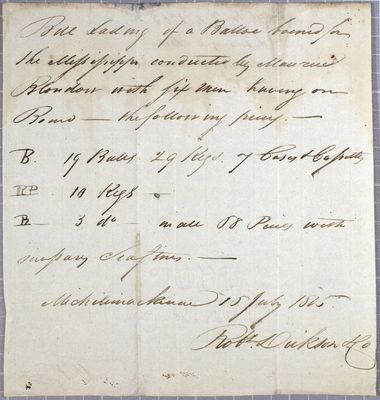 Bill Lading of a Batteau bound for
the Mississippi conducted by Maurice
Blondeau with six men having on
Board — the following pieces —
B. 19 Bales 29 Kegs 7 Cases & Cassettes
RP 10 Kegs —
B — 3 do — in all 68 Pieces with
necessary Seastores. —
Michilimackinac 15 July 1805.
Robt. Dickson & Co